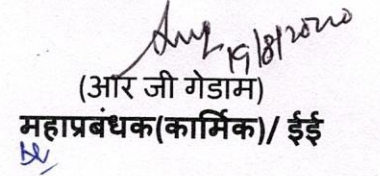 19/8/2020
(आर जी गेडाम)
महाप्रबंधक(कार्मिक)/ ईई